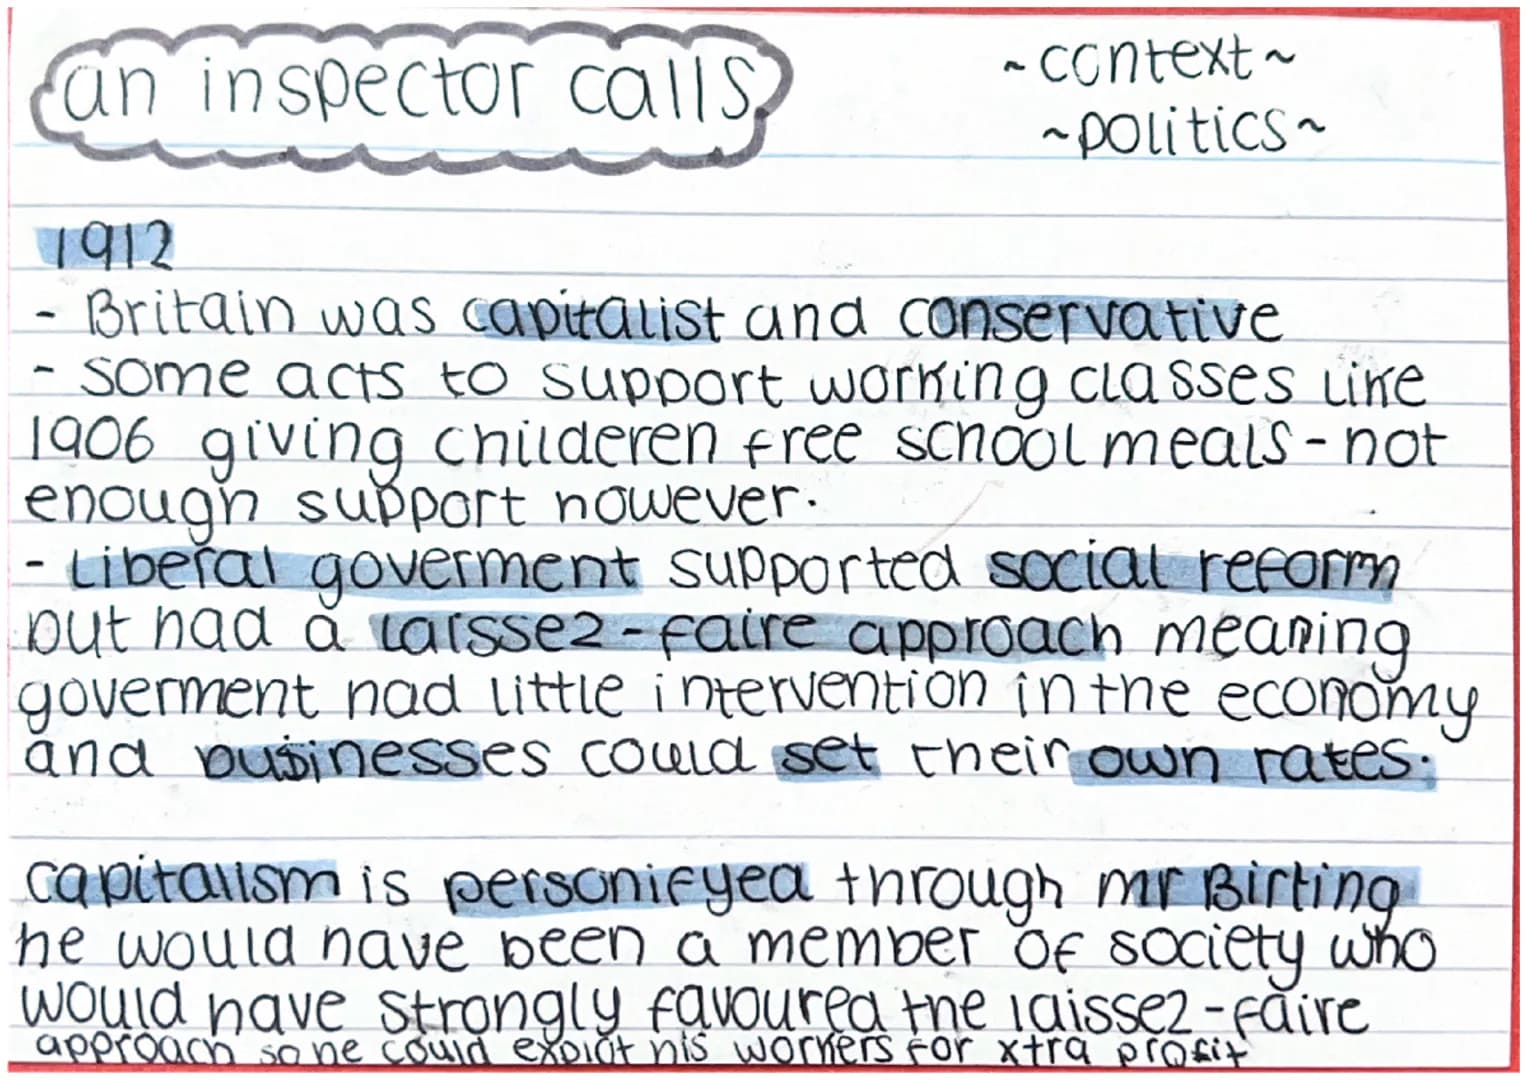 an inspector calls
~context~
~politics~
1912
- Britain was capitalist and conservative
- some acts to support working classes like
1906 giving childeren free school meals - not
enough support however.
- Liberal goverment supported social reform
but had a laissez-faire approach meaning
goverment had little intervention in the economy
and businesses could set their own rates.
capitalism is personifyed through mr Birting
he would have been a member of society who
would have strongly favoured the laissez-faire
approach so he could exploit his workers for xtra profit